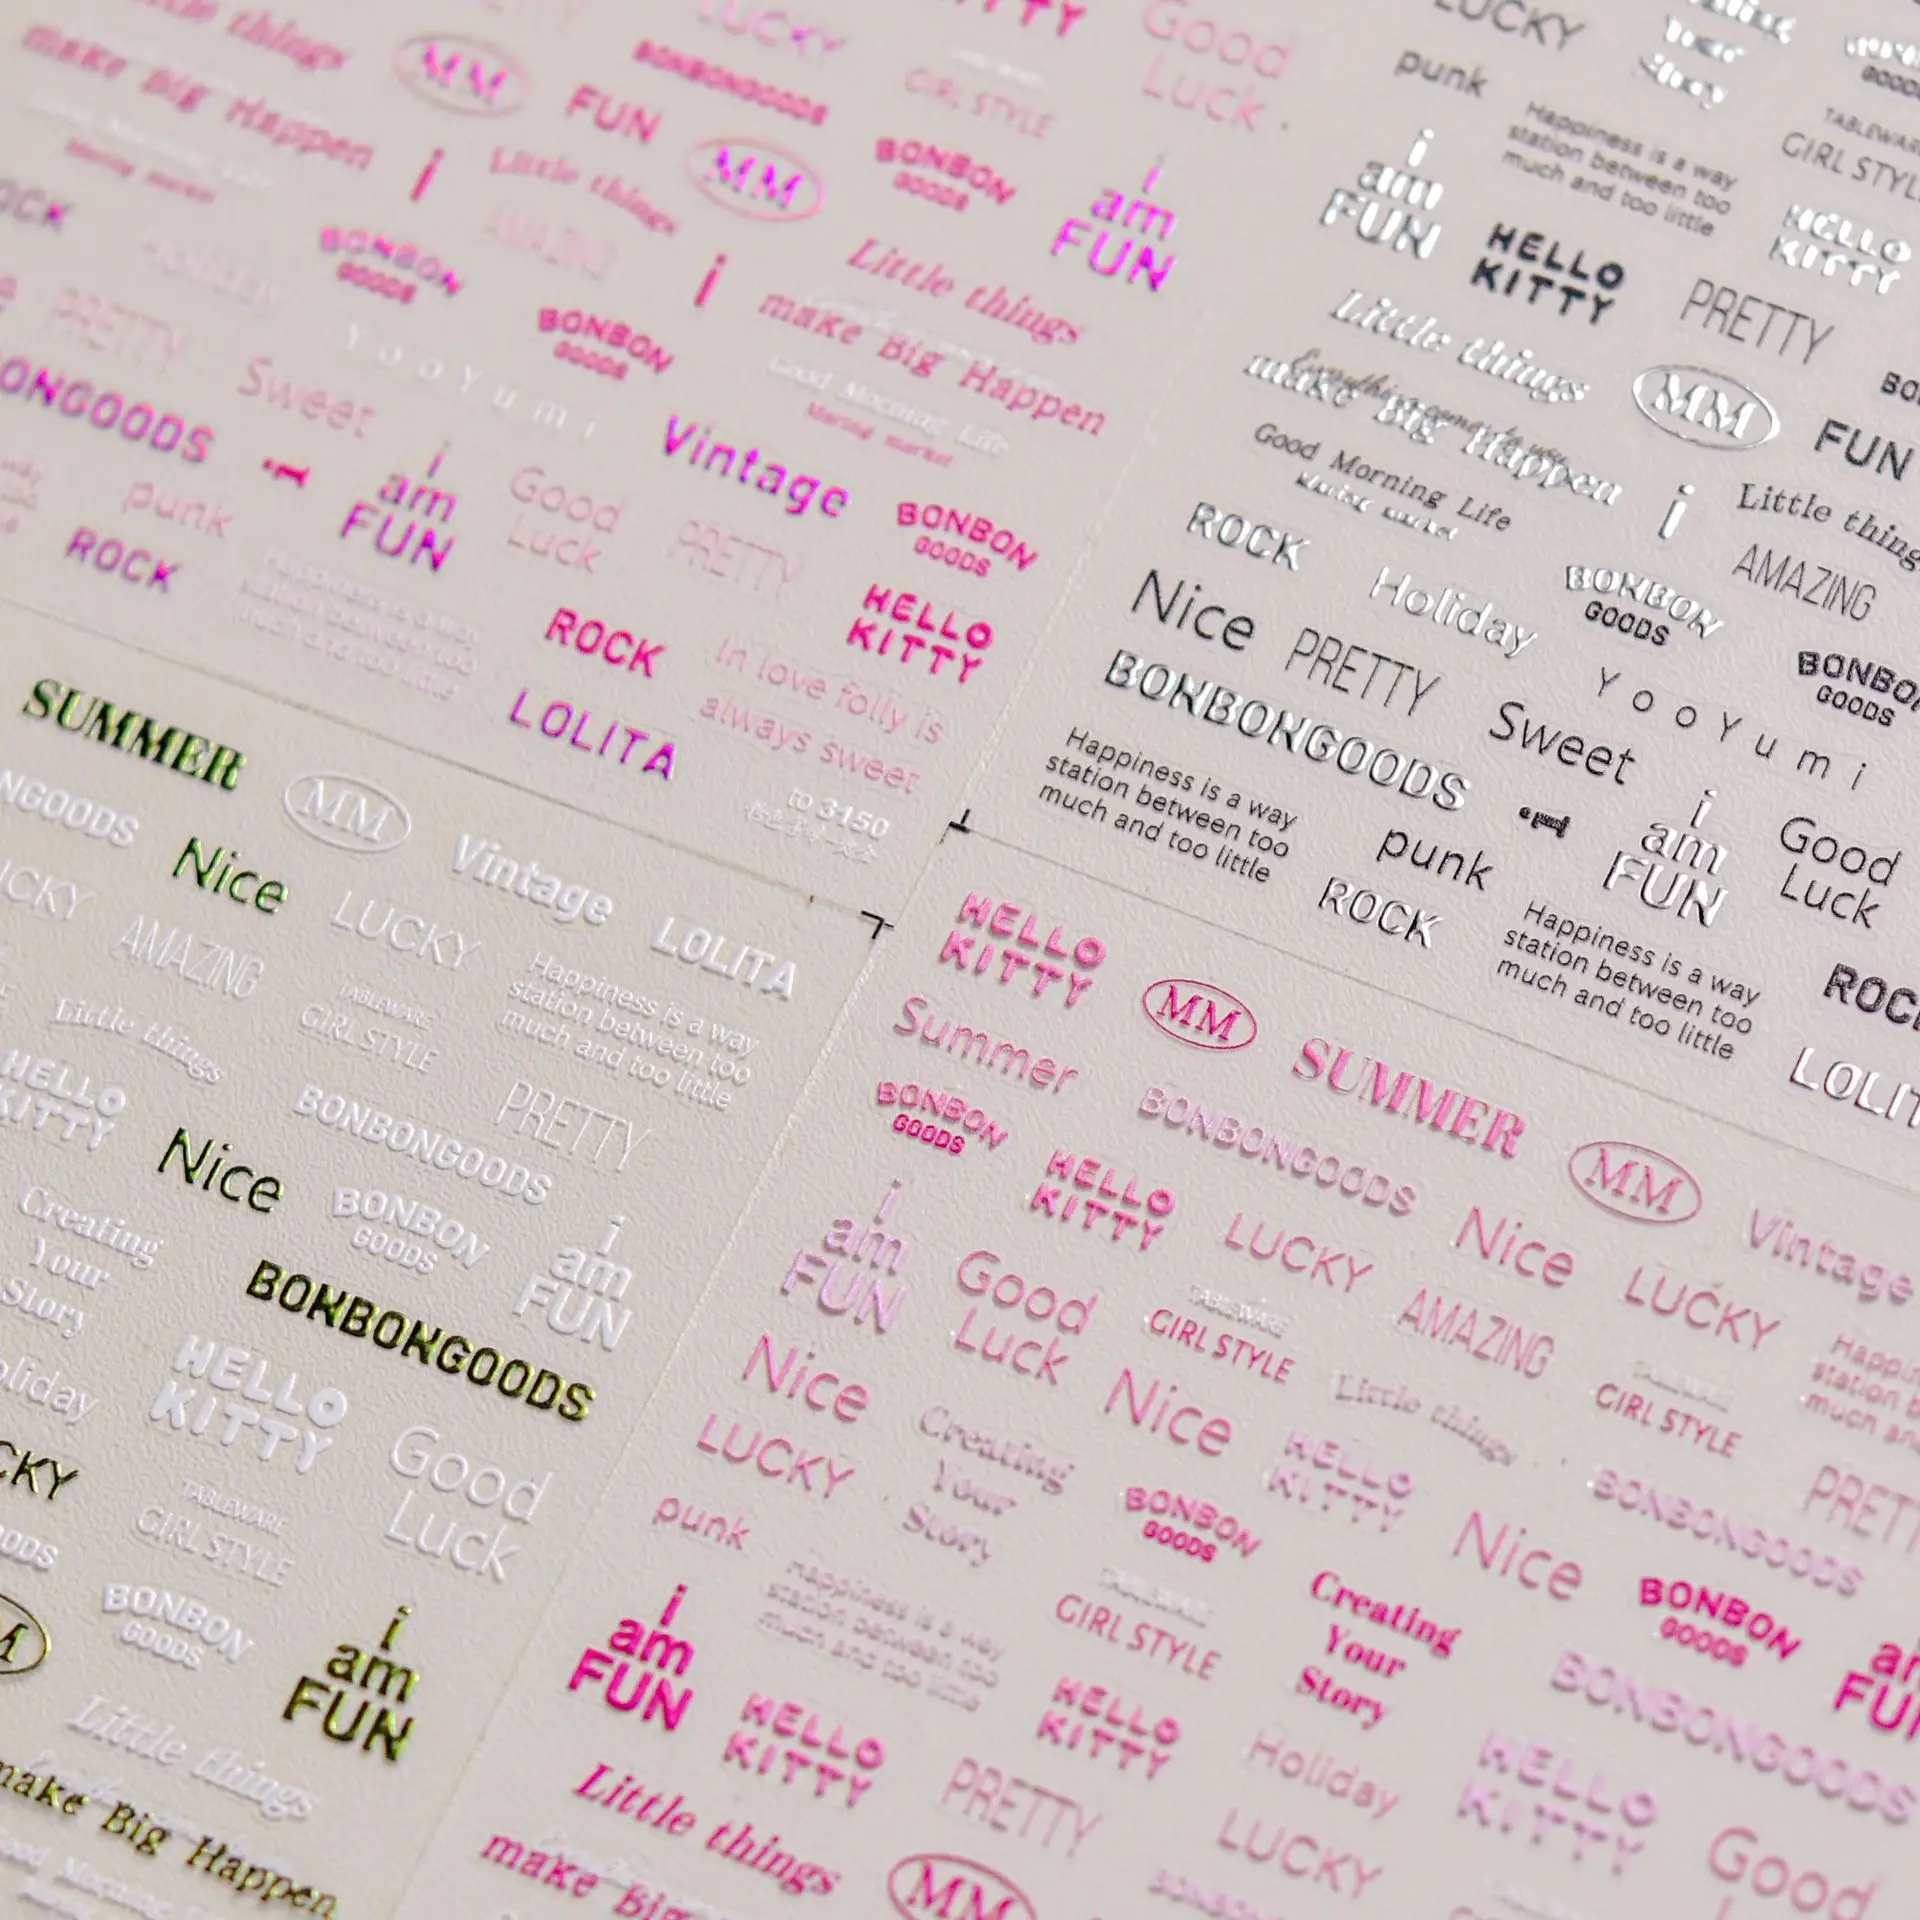 Little things
make Big Happen
MM
FUN
LUCKY
BONBONGOODS
GIRL STYLE
Good
Luck
i
Little things
AMAZING
MM
BONBON
GOODS
i
am
FUN
BONBON
GOODS
i
Little things
make Big Happen
Good Morning Life
Maring market
PRETTY
Sweet
YooYumi
BONBON
GOODS
Vintage
BONBON
GOODS
punk
i
am
FUN
Good
Luck
PRETTY
HELLO
KITTY
ROCK
Happiness is a way
station between too
much and too little
ROCK
In love folly is
always sweet
LOLITA
to 3:150
LUCKY
punk
Your
Story
GOODS
TABLEWARE
GIRL STYLE
Happiness is a way
station between too
much and too little
i
am
FUN
HELLO
KITTY
HELLO
KITTY
PRETTY
Little things
make Big Happen
Everything comes to you
MM
FUN
Good Morning Life
Maring market
i
Little things
ROCK
Holiday
BONBON
GOODS
AMAZING
Nice
PRETTY
YooYumi
BONBON
GOODS
BONBONGOODS
Sweet
Happiness is a way
station between too
much and too little
punk
i
am
FUN
Good
Luck
ROCK
Happiness is a way
station between too
much and too little
ROCK
LOLITA
SUMMER
MM
Vintage
LOLITA
Nice
LUCKY
AMAZING
Happiness is a way
station between too
much and too little
Little things
TABLEWARE
GIRL STYLE
PRETTY
HELLO
KITTY
BONBONGOODS
Nice
Creating
Your
Story
BONBON
GOODS
i
am
FUN
BONBONGOODS
Holiday
HELLO
KITTY
Good
Luck
TABLEWARE
GIRL STYLE
BONBON
GOODS
i
am
FUN
Little things
make Big Happen
HELLO
KITTY
MM
SUMMER
MM
Vintage
Summer
BONBONGOODS
BONBON
GOODS
HELLO
KITTY
LUCKY
Nice
LUCKY
i
am
FUN
Good
Luck
TABLEWARE
GIRL STYLE
AMAZING
Nice
Nice
Little things
TABLEWARE
GIRL STYLE
LUCKY
Creating
Your
Story
HELLO
KITTY
BONBONGOODS
PRETTY
punk
BONBON
GOODS
Nice
Happiness is a way
station between too
much and too little
i
am
FUN
TABLEWARE
GIRL STYLE
Creating
Your
Story
BONBON
GOODS
BONBONGOODS
HELLO
KITTY
HELLO
KITTY
Holiday
HELLO
KITTY
Little things
make Big
PRETTY
LUCKY
Good
MM